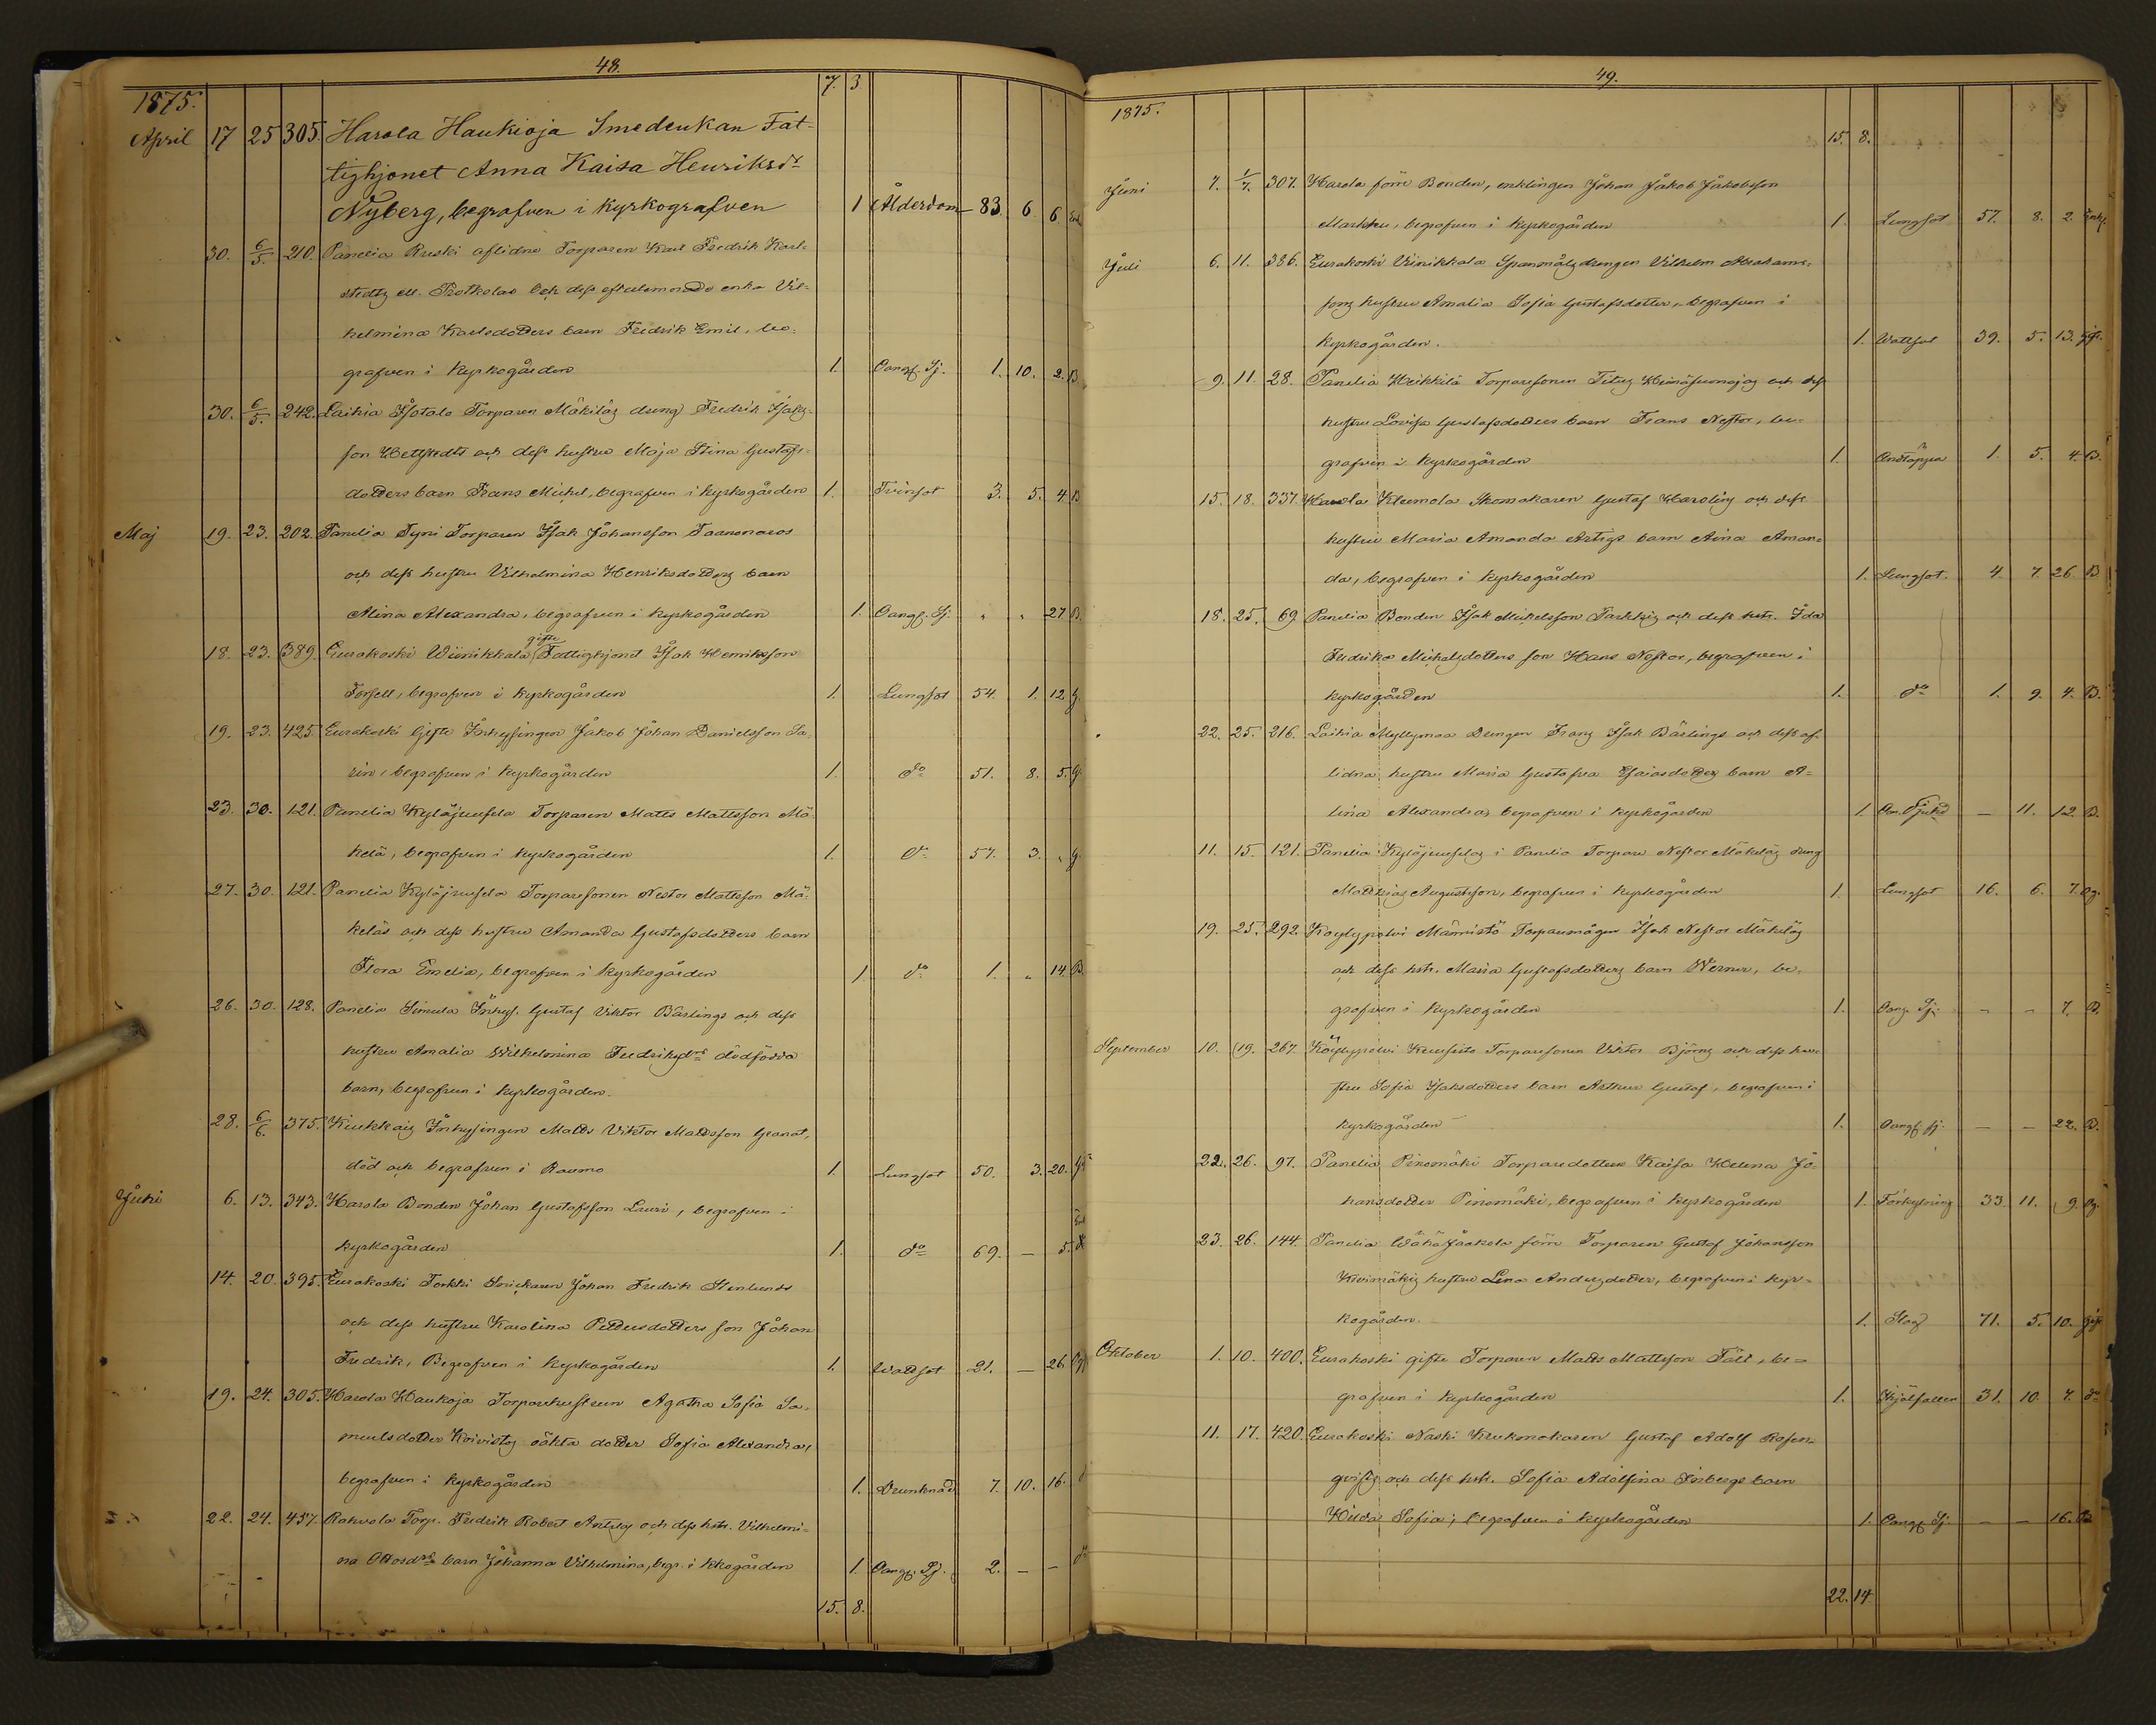 48.
1875. 7. 3.
April 17 25 305. Harola Haukioja Smedenkan Fat-
tighjonet Anna Kaisa Henriksdr
Nyberg, begrafven i kyrkografven 1 Ålderdom 83. 6 6 Enk
30. 6/5. 210. Panelia Ruski aflidne Torparen Karl Fredrik Karl-
stedts ell. och dess efterlemnade enka Vil-
helmina Karlsdotters barn Fredrik Emil, be-
grafven i kyrkogården 1. Oangf. Sj. 1. 10. 2. B.
30. 6/5. 242. Laihia Isotalo Torparen Mäkiläs dreng Fredrik Isaks-
son Wettstedts och dess hustru Maja Stina Gustafs-
dotters barn Frans Michel, begrafven i kyrkogården 1. Tvinsot 3. 5. 4. B
Maj 19. 23. 202. Panelia Tyni Torparen Isak Johansson
och dess hustru Vilhelmina Henriksdotters barn
Alina Alexandra, begrafven i kyrkogården 1. Oangf. Sj. " " 27. B.
18. 23. 389. Eurakoski Wiinikkala gifte Fattighjonet Isak Henriksson
Forsell, begrafven i kyrkogården 1. Lungsot 54. 1. 12. g.
19. 23. 425. Eurakoski Gifte Inhysingen Jakob Johan Danielsson Sa-
rin, begrafven i kyrkogården 1. do 51. 8. 5. g.
23. 30. 121. Panelia Kyläjuusela Torparen Matts Mattsson Mä-
kelä, begrafven i kyrkogården 1. do 57. 3. " g.
27. 30. 121. Panelia Kyläjuusela Torparesonen Nestor Mattsson Mä-
keläs och dess hustru Amanda Gustafsdotters barn
Flora Emelia, begrafven i kyrkogården 1. do 1. " 14. B
26. 30. 128. Panelia Simula Inhys. Gustaf Viktor Bärlings och dess
hustru Amalia Wilhelmina Fredriksdrs dödfödda
barn, begrafven i kyrkogården.
28. 6/6. 375. Kiukkais Inhysingen Matts Viktor Mattsson Granat,
död och begrafven i Raumo 1. Lungsot 50. 3. 20.
Juni 6. 13. 343. Harola Bonden Johan Gustafsson Lauri, begrafven i
kyrkogården 1. do 69. — 5.
14. 20. 395. Eurakoski Torkki Snickaren Johan Fredrik Stenlunds
och dess hustru Karolina Pettersdotters son Johan
Fredrik, Begrafven i kyrkogården 1. Wattsot 21. — 26. Og
19. 24. 305. Harola Haukoja Torparehustrun Agatha Sofia Sa-
muelsdotter Koivistos oäkta dotter Sofia Alexandra,
begrafven i kyrkogården 1. Drunknad 7. 10. 16.
22. 24. 457. Rahvola Torp. Fredrik Robert och dess hstr. Vilhelmi-
na Ottosdrs barn Johanna Vilhelmina, begr. i kkogården 1. Oangf. Sj. 2. — —
15. 8.
49.
1875. 15. 8.
Juni 7. 1/7. 307. Harola förre Bonden, enklingen Johan Jakob Jakobsson
Markku, begrafven i kyrkogården 1. Lungsot 57. 8. 2. Enkl.
Juli 6. 11. 386. Eurakoski Viinikkala Spanmålsdrengen Vilhelm Abrahams-
sons hustru Amalia Sofia Gustafsdotter, begrafven i
kyrkogården. 1. Wattsot 39. 5. 13. gift.
9. 11. 28. Panelia Heikkilä Torparesonen Titus och dess
hustru Lovisa Gustafsdotters barn Frans Nestor, be-
grafven i kyrkogården 1. Andtäppa 1. 5. 4. B.
15. 18. 337. Harola Kleemola Skomakaren Gustaf Harolins och dess
hustru Maria Amanda Artigs barn Aina Aman-
da, begrafven i kyrkogården 1. Lungsot. 4. 7. 26. B
18. 25. 69. Panelia Bonden Isak Michelsson Tarkkis och dess hstr. Ida
Fredrika Michelsdotters son Hans Nestor, begrafven i
kyrkogården 1. do 1. 9. 4. B.
22. 25. 216. Laihia Myllymaa Drengen Frans Isak Bärlings och dess af-
lidna hustru Maria Gustafva Esaiasdotters barn A-
lina Alexandra, begrafven i kyrkogården 1. — 11. 12. B.
11. 15. 121. Panelia Kyläjuuselas i Panelia Torpare Nestor Mäkeläs dreng
Matthias Augustsson, begrafven i kyrkogården 1. Lungsot 16. 6. 7. Og.
19. 25. 292. Köylypolvi Männistö Torparemågen Isak Nestor Mäkeläs
och dess hstr. Maria Gustafsdotters barn Werner, be-
grafven i kyrkogården 1. Oang. Sj. - - 7. B.
September 10. 19. 267. Köylypolvi Kuusisto Torparesonen Viktor Björns och dess hu-
stru Sofia Isaksdotters barn Arthur Gustaf, begrafven i
kyrkogården 1. Oangf. sj. — — 22. B.
22. 26. 97. Panelia Pinomäki Torparedottren Kaisa Helena Jo-
hansdotter Pinomäki, begrafven i kyrkogården 1. Förkylning 33. 11. 9. Og.
23. 26. 144. Panelia Wähä Jaakola förre Torparen Gustaf Johansson
Kivimäkis hustru Lena Andersdotter, begrafven i kyr-
kogården. 1. Slag 71. 5. 10. gift
Oktober 1. 10. 400. Eurakoski gifte Torparen Matts Mattsson Fält, be-
grafven i kyrkogården 1. Ihjälfallen 31. 10. 7. do
11. 17. 420. Eurakoski Naski Krukomakaren Gustaf Adolf Rosen-
qvists och dess hstr. Sofia Adolfina barn
Hilda Sofia; begrafven i kyrkogården 1. Oangf. Sj. — — 16. B
22. 14